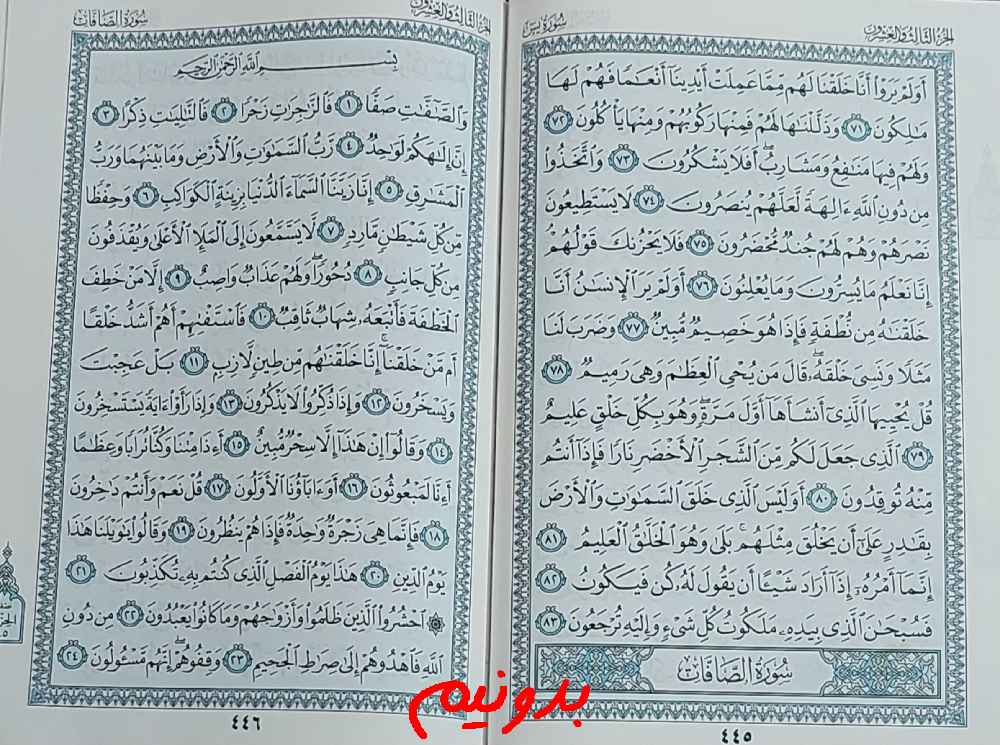 الجزء الثالث والعشرون
سورة يس
أَوَلَمْ يَرَوْا۟ أَنَّا خَلَقْنَا لَهُم مِّمَّا عَمِلَتْ أَيْدِينَآ أَنْعَٰمًا فَهُمْ لَهَا
مَٰلِكُونَ ٧١ وَذَلَّلْنَٰهَا لَهُمْ فَمِنْهَا رَكُوبُهُمْ وَمِنْهَا يَأْكُلُونَ ٧٢
وَلَهُمْ فِيهَا مَنَٰفِعُ وَمَشَارِبُ ۖ أَفَلَا يَشْكُرُونَ ٧٣ وَٱتَّخَذُوا۟
مِن دُونِ ٱللَّهِ ءَالِهَةً لَّعَلَّهُمْ يُنصَرُونَ ٧٤ لَا يَسْتَطِيعُونَ
نَصْرَهُمْ وَهُمْ لَهُمْ جُندٌ مُّحْضَرُونَ ٧٥ فَلَا يَحْزُنكَ قَوْلُهُمْ ۘ
إِنَّا نَعْلَمُ مَا يُسِرُّونَ وَمَا يُعْلِنُونَ ٧٦ أَوَلَمْ يَرَ ٱلْإِنسَٰنُ أَنَّا
خَلَقْنَٰهُ مِن نُّطْفَةٍ فَإِذَا هُوَ خَصِيمٌ مُّبِينٌ ٧٧ وَضَرَبَ لَنَا
مَثَلًا وَنَسِىَ خَلْقَهُۥ ۖ قَالَ مَن يُحْىِ ٱلْعِظَٰمَ وَهِىَ رَمِيمٌ ٧٨
قُلْ يُحْيِيهَا ٱلَّذِىٓ أَنشَأَهَآ أَوَّلَ مَرَّةٍ ۖ وَهُوَ بِكُلِّ خَلْقٍ عَلِيمٌ
٧٩ ٱلَّذِى جَعَلَ لَكُم مِّنَ ٱلشَّجَرِ ٱلْأَخْضَرِ نَارًا فَإِذَآ أَنتُم
مِّنْهُ تُوقِدُونَ ٨٠ أَوَلَيْسَ ٱلَّذِى خَلَقَ ٱلسَّمَٰوَٰتِ وَٱلْأَرْضَ
بِقَٰدِرٍ عَلَىٰٓ أَن يَخْلُقَ مِثْلَهُم ۚ بَلَىٰ وَهُوَ ٱلْخَلَّٰقُ ٱلْعَلِيمُ ٨١
إِنَّمَآ أَمْرُهُۥٓ إِذَآ أَرَادَ شَيْـًٔا أَن يَقُولَ لَهُۥ كُن فَيَكُونُ ٨٢
فَسُبْحَٰنَ ٱلَّذِى بِيَدِهِۦ مَلَكُوتُ كُلِّ شَىْءٍ وَإِلَيْهِ تُرْجَعُونَ ٨٣
سورة الصافات
٤٤٥
الجزء الثالث والعشرون
سورة الصافات
بِسْمِ ٱللَّهِ ٱلرَّحْمَٰنِ ٱلرَّحِيمِ
وَٱلصَّٰٓفَّٰتِ صَفًّا ١ فَٱلزَّٰجِرَٰتِ زَجْرًا ٢ فَٱلتَّٰلِيَٰتِ ذِكْرًا ٣
إِنَّ إِلَٰهَكُمْ لَوَٰحِدٌ ٤ رَّبُّ ٱلسَّمَٰوَٰتِ وَٱلْأَرْضِ وَمَا بَيْنَهُمَا وَرَبُّ
ٱلْمَشَٰرِقِ ٥ إِنَّا زَيَّنَّا ٱلسَّمَآءَ ٱلدُّنْيَا بِزِينَةٍ ٱلْكَوَاكِبِ ٦ وَحِفْظًا
مِّن كُلِّ شَيْطَٰنٍ مَّارِدٍ ٧ لَّا يَسَّمَّعُونَ إِلَى ٱلْمَلَإِ ٱلْأَعْلَىٰ وَيُقْذَفُونَ
مِن كُلِّ جَانِبٍ ٨ دُحُورًا ۖ وَلَهُمْ عَذَابٌ وَاصِبٌ ٩ إِلَّا مَنْ خَطِفَ
ٱلْخَطْفَةَ فَأَتْبَعَهُۥ شِهَابٌ ثَاقِبٌ ١٠ فَٱسْتَفْتِهِمْ أَهُمْ أَشَدُّ خَلْقًا
أَم مَّنْ خَلَقْنَآ ۚ إِنَّا خَلَقْنَٰهُم مِّن طِينٍ لَّازِبٍۭ ١١ بَلْ عَجِبْتَ
وَيَسْخَرُونَ ١٢ وَإِذَا ذُكِّرُوا۟ لَا يَذْكُرُونَ ١٣ وَإِذَا رَأَوْا۟ ءَايَةً يَسْتَسْخِرُونَ
١٤ وَقَالُوٓا۟ إِنْ هَٰذَآ إِلَّا سِحْرٌ مُّبِينٌ ١٥ أَءِذَا مِتْنَا وَكُنَّا تُرَابًا وَعِظَٰمًا
أَءِنَّا لَمَبْعُوثُونَ ١٦ أَوَءَابَآؤُنَا ٱلْأَوَّلُونَ ١٧ قُلْ نَعَمْ وَأَنتُمْ دَٰخِرُونَ
١٨ فَإِنَّمَا هِىَ زَجْرَةٌ وَٰحِدَةٌ فَإِذَا هُمْ يَنظُرُونَ ١٩ وَقَالُوا۟ يَٰوَيْلَنَا هَٰذَا
يَوْمُ ٱلدِّينِ ٢٠ هَٰذَا يَوْمُ ٱلْفَصْلِ ٱلَّذِى كُنتُم بِهِۦ تُكَذِّبُونَ ٢١
۞ ٱحْشُرُوا۟ ٱلَّذِينَ ظَلَمُوا۟ وَأَزْوَٰجَهُمْ وَمَا كَانُوا۟ يَعْبُدُونَ ٢٢ مِن دُونِ
ٱللَّهِ فَٱهْدُوهُمْ إِلَىٰ صِرَٰطِ ٱلْجَحِيمِ ٢٣ وَقِفُوهُمْ ۖ إِنَّهُم مَّسْـُٔولُونَ ٢٤
٤٤٦
بدونیم